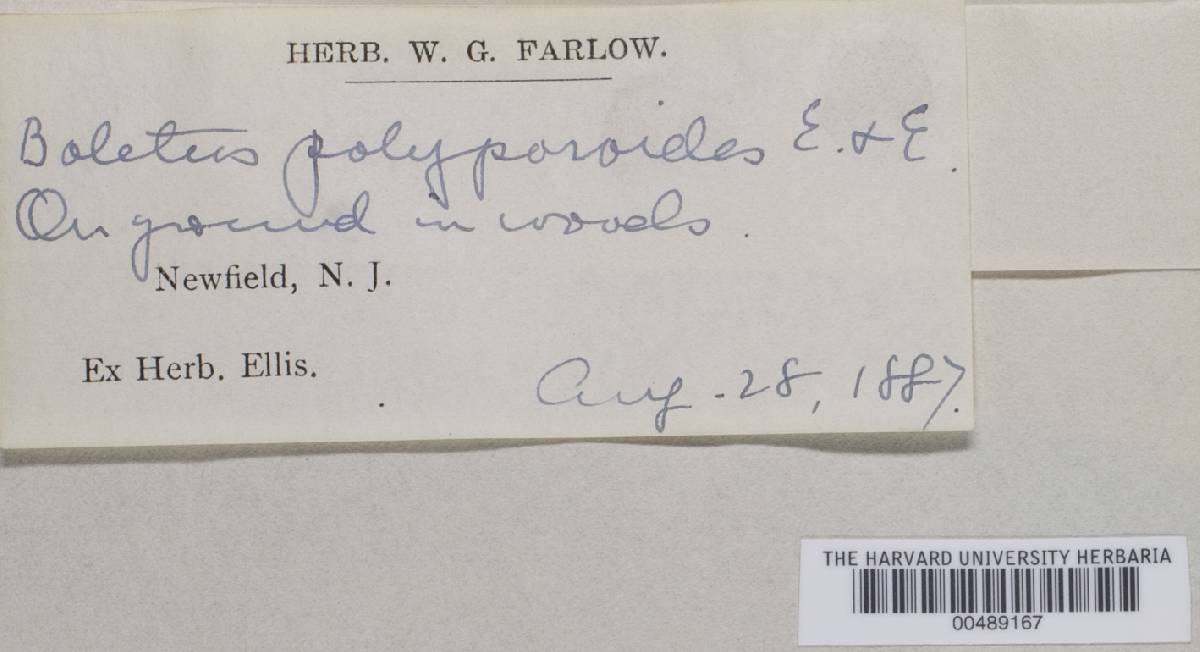 HERB. W. G. FARLOW.
Boletus polyporoides E. & E.
On ground in woods.
Newfield, N. J.
Ex Herb. Ellis.
Aug. 28, 1887.
THE HARVARD UNIVERSITY HERBARIA
00489167